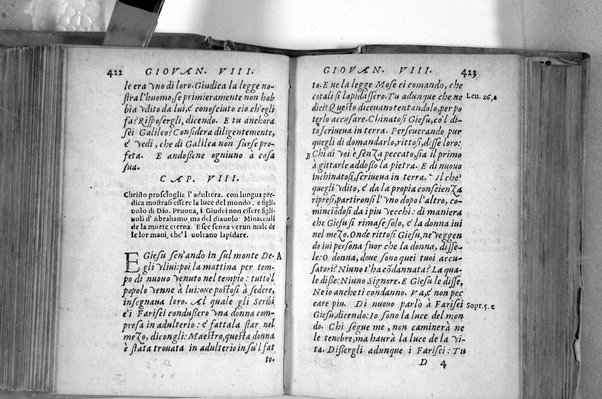 422 GIOVAN. VIII.
le era vno di loro. Giudica la legge no-
stra l'huomo, se primieramente non hab
bia vdito da lui, è conosciuto ciò ch'egli
fa? Risposergli, dicendo. E tu anchora
sei Galileo? Considera diligentemente,
è vedi, che di Galilea non surse pro-
feta. E andossene ogniuno à casa
sua.
CAP. VIII.
Christo proscioglie l'adultera. con lungua pre-
dica mostrasi essere la luce del mondo, e figli-
uolo di Dio. Pruoua, i Giudei non essere figli-
uoli d'Abrahamo ma del diauolo Minacciali
de la morte eterna. E sce senza verun male de
le lor mani, che'l uoleano lapidare.
E Giesù sen'andò in sul monte De-
gli Vliui: poi la mattina per tem-
po di nuouo venuto nel tempio: tutto'l
popolo venne à lui: oue postosi à sedere,
insegnaua loro. Al quale gli Scribi
è i Farisei condussero vna donna com-
presa in adulterio: è fattala star nel
mezo, diconglí: Maestro, questa donna
è stata trouata in adulterio in sù'l fat
to.
A
GIOVAN. VIII. 423
to. E ne la legge Mose ci comandò, che
cotali si lapidassero. Tu adunque che ne
dici? Questo diceuano tentandolo, per po
terlo accusare. Chinatosi Giesù, co'l di-
to scriueua in terra. Perseuerando pur
quegli di domandarlo, rittosi, disse loro:
Chi di voi è senza peccato, sia il primo
à gittarle addosso la pietra. E di nuouo
inchinatosi, scriueua in terra. Il che
quegli vdito, è da la propia conscienza
ripresi, partironsi l'vno dopo l'altro, co-
minciādosi da i piu vecchi: di maniera
che Giesù si rimase solo, è la donna iui
nel mezo. Onde rittosi Giesù, ne veggen
do iui persona fuor che la donna, disse-
le: O donna, doue sono quei tuoi accu-
satori? Niuno t'ha cōdannata? La qua-
le disse: Niuno Signore. E Giesù le disse,
Ne io anche ti condanno. Va, è non pec
care piu. Di nuouo parlò à Farisei
Giesù, dicendo: Io sono la luce del mon
do. Chi segue me, non caminerà ne
le tenebre, ma haurà la luce de la vi-
ta. Dissergli adunque i Farisei: Tu
D 4
Leu. 26, a
B
Sopr. 5. e